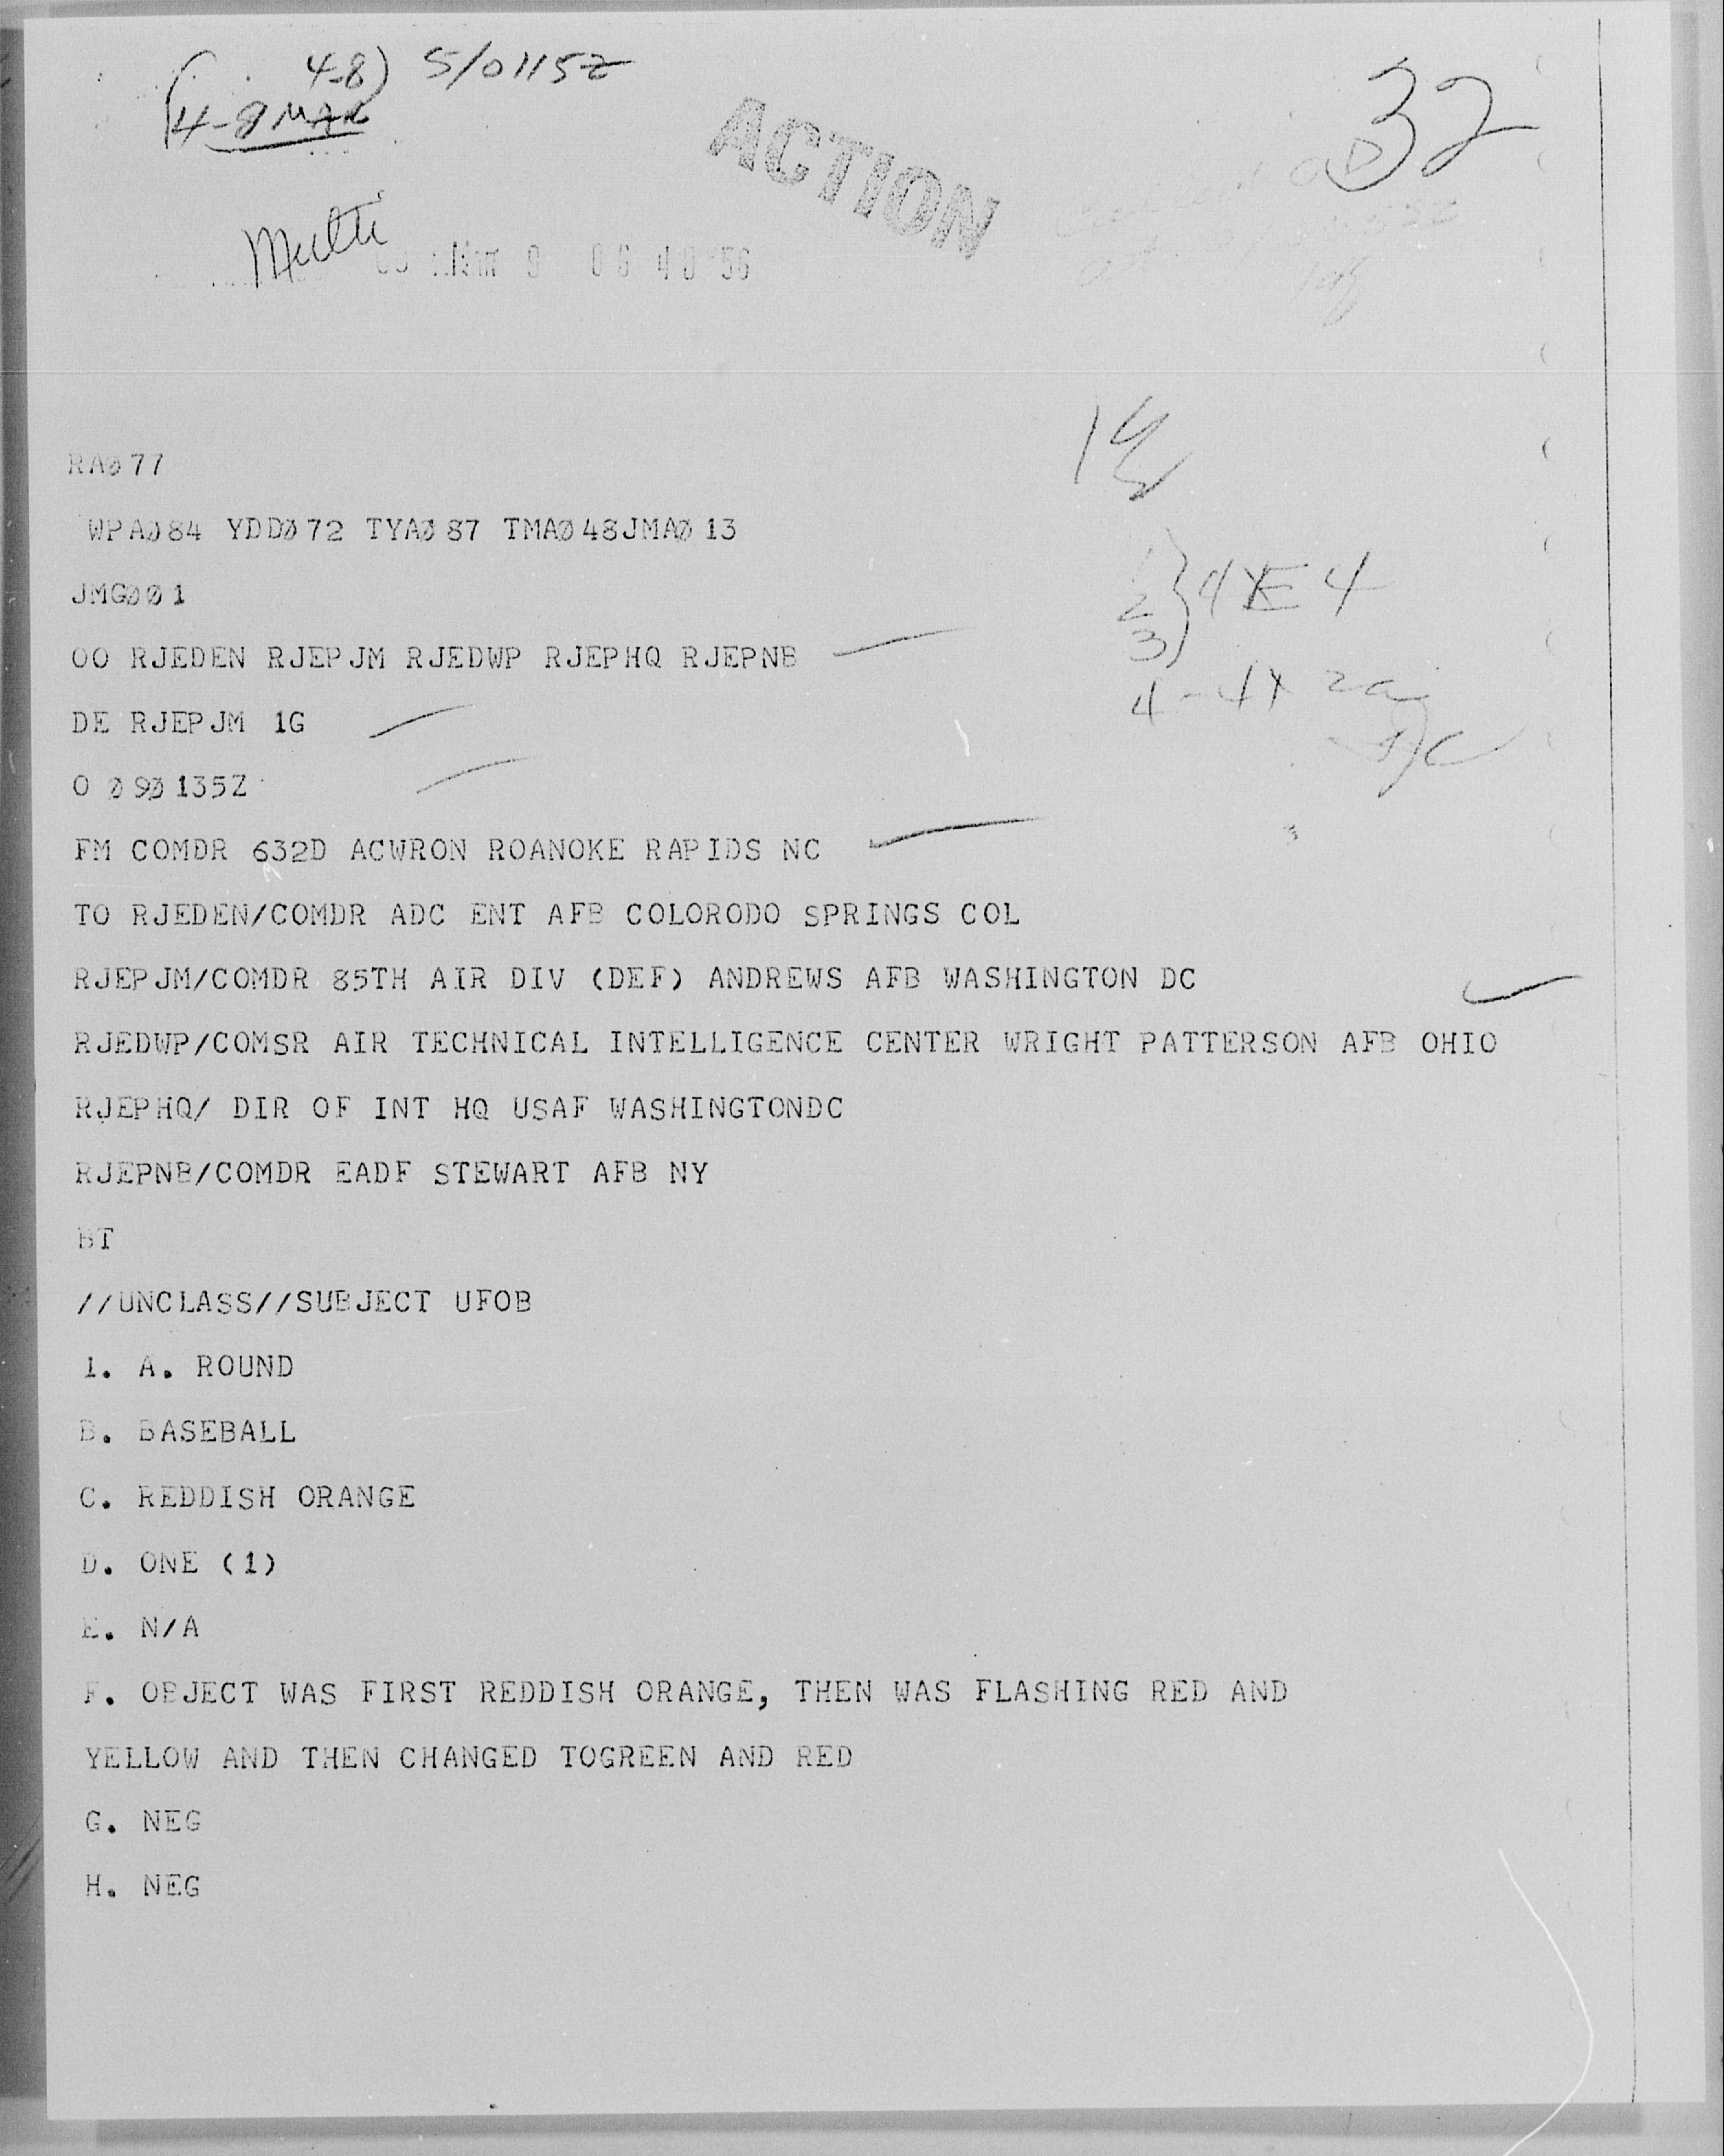 (4-8) 5/0115Z
4-8 MAR
32
ACTION
Multi
MAR 9 06 40 56
14
RAØ77
WPAØ84 YDDØ72 TYAØ87 TMAØ48JMAØ13
JMGØØ1
2
3
4
OO RJEDEN RJEPJM RJEDWP RJEPHQ RJEPNB
DE RJEPJM 1G
O Ø9Ø135Z
FM COMDR 632D ACWRON ROANOKE RAPIDS NC
TO RJEDEN/COMDR ADC ENT AFB COLORODO SPRINGS COL
RJEPJM/COMDR 85TH AIR DIV (DEF) ANDREWS AFB WASHINGTON DC
RJEDWP/COMSR AIR TECHNICAL INTELLIGENCE CENTER WRIGHT PATTERSON AFB OHIO
RJEPHQ/ DIR OF INT HQ USAF WASHINGTONDC
RJEPNB/COMDR EADF STEWART AFB NY
BT
//UNCLASS//SUBJECT UFOB
1. A. ROUND
B. BASEBALL
C. REDDISH ORANGE
D. ONE (1)
E. N/A
F. OBJECT WAS FIRST REDDISH ORANGE, THEN WAS FLASHING RED AND
YELLOW AND THEN CHANGED TOGREEN AND RED
G. NEG
H. NEG